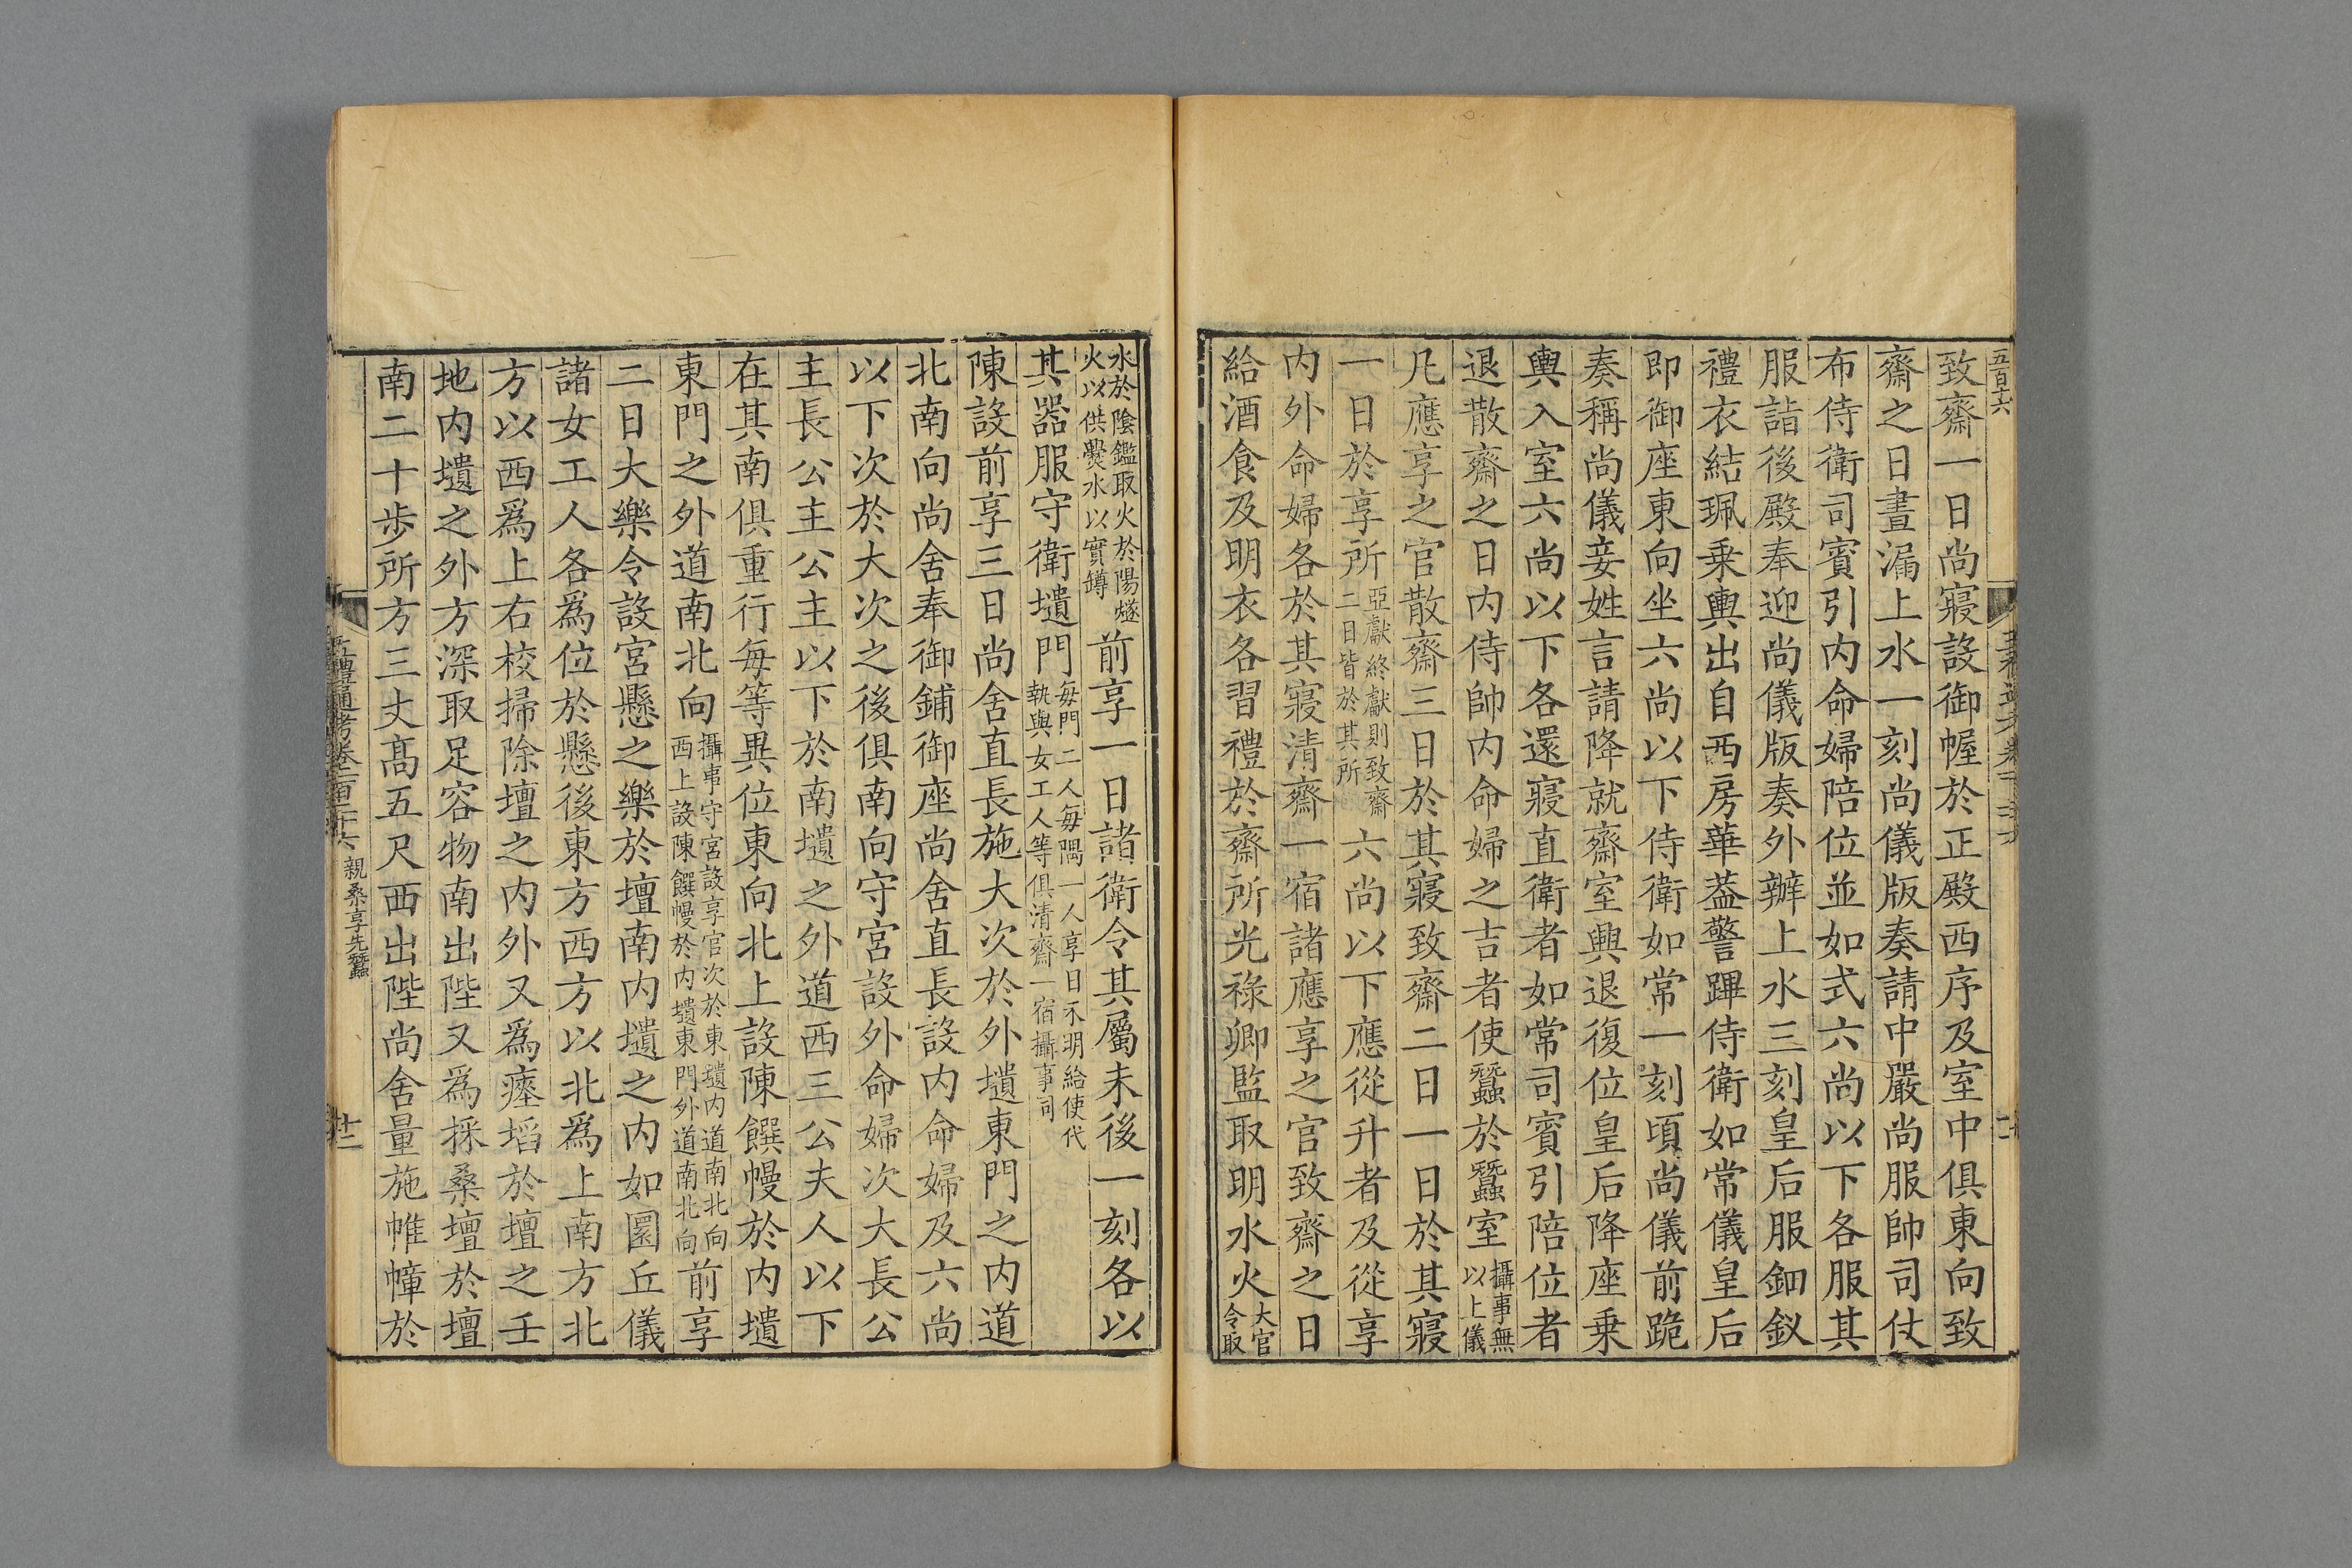 五百十六
致齋一日尚寢設御幄於正殿西序及室中俱東向致
齋之日晝漏上水一刻尚儀版奏請中嚴尚服帥司仗
布侍衛司賓引内命婦陪位並如式六尚以下各服其
服詣後殿奉迎尚儀版奏外辦上水三刻皇后服鈿釵
禮衣結珮乗輿出自西房華葢警蹕侍衛如常儀皇后
即御座東向坐六尚以下侍衛如常一刻頃尚儀前跪
奏稱尚儀妾姓言請降就齋室興退復位皇后降座乗
輿入室六尚以下各還寢直衛者如常司賓引陪位者
退散齋之日内侍帥内命婦之吉者使蠶於蠶室攝事無以上儀
凡應享之官散齋三日於其寢致齋二日一日於其寢
一日於享所亞獻終獻則致齋二日皆於其所六尚以下應從升者及從享
内外命婦各於其寢清齋一宿諸應享之官致齋之日
給酒食及明衣各習禮於齋所光祿卿監取明水火大官令取
水於陰鑑取火於陽燧火以供爨水以實罇前享一日諸衛令其屬未後一刻各以
其器服守衛壝門每門二人每隅一人享日未明給使代執與女工人等俱清齋一宿攝事同
陳設前享三日尚舍直長施大次於外壝東門之内道
北南向尚舍奉御鋪御座尚舍直長設内命婦及六尚
以下次於大次之後俱南向守宮設外命婦次大長公
主長公主公主以下於南壝之外道西三公夫人以下
在其南俱重行每等異位東向北上設陳饌幔於内壝
東門之外道南北向攝事守宮設享官次於東壝内道南北向西上設陳饌幔於内壝東門外道南北向前享
二日大樂令設宮懸之樂於壇南内壝之内如圜丘儀
諸女工人各爲位於懸後東方西方以北爲上南方北
方以西爲上右校掃除壇之内外又爲瘞埳於壇之壬
地内壝之外方深取足容物南出陛又爲採桑壇於壇
南二十歩所方三丈高五尺西出陛尚舍量施帷幛於
五禮通考卷一百二十六 親桑享先蠶 廿二